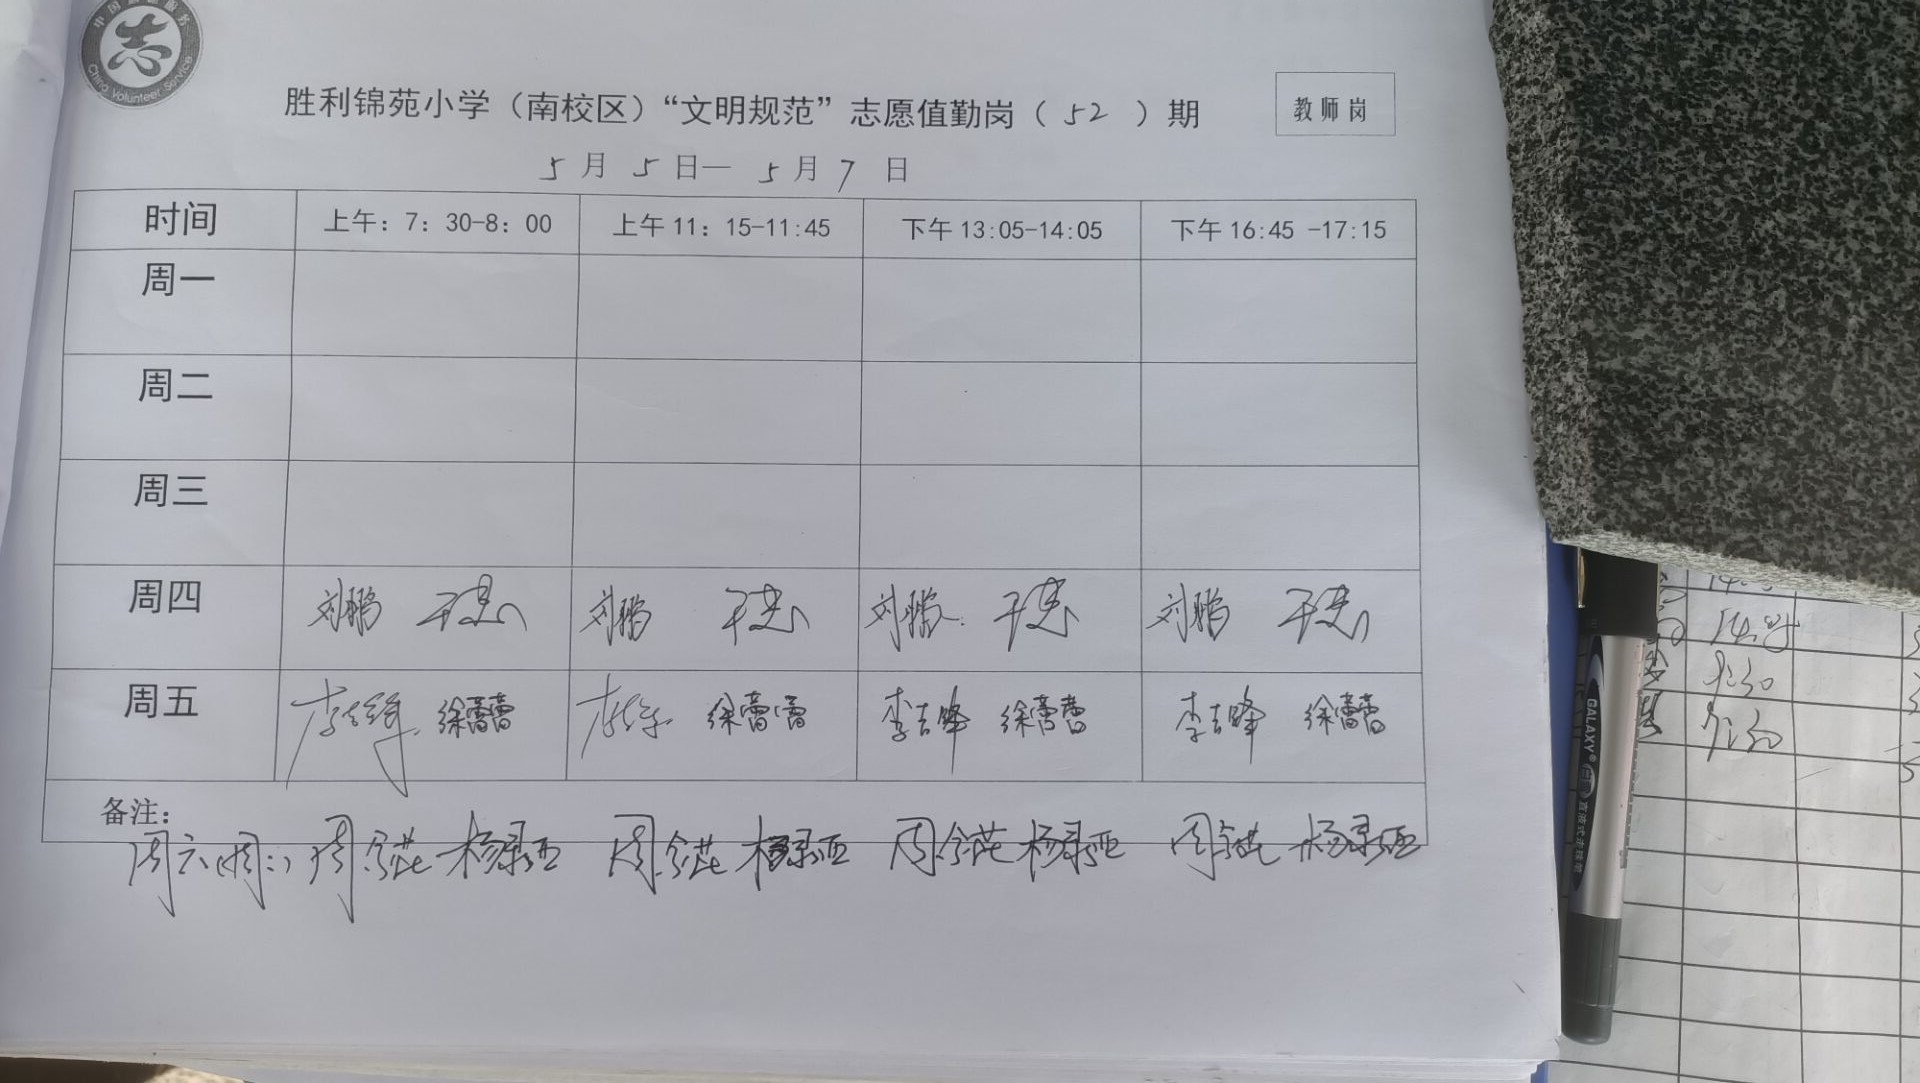 中国志愿服务
志
China Volunteer Service
胜利锦苑小学（南校区）“文明规范”志愿值勤岗（ 52 ）期
教师岗
5 月 5 日— 5 月 7 日
时间 上午：7：30-8：00 上午11：15-11:45 下午13:05-14:05 下午16:45 -17:15
周一
周二
周三
周四 刘鹏 刘鹏 刘鹏 刘鹏
周五 李吉峰 徐蕾蕾 李吉峰 徐蕾蕾 李吉峰 徐蕾蕾 李吉峰 徐蕾蕾
备注：
周六（周二） 周 杨 周 杨 周 杨 周 杨
GALAXY
直液式走珠笔
9:30
9:30